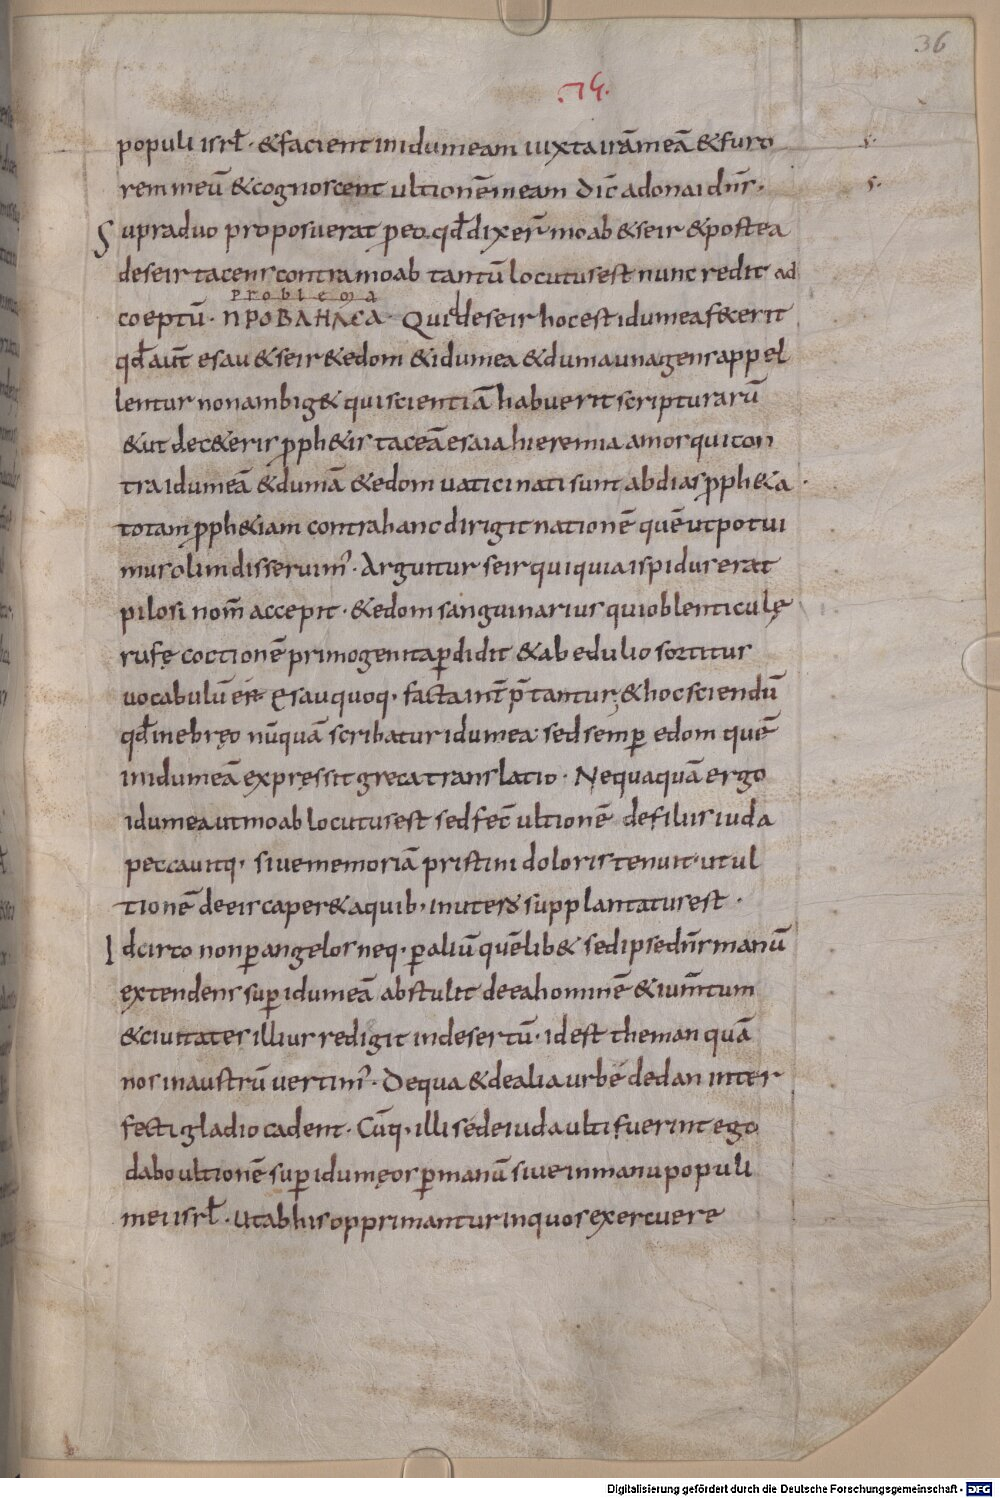 36
populi isrł · &facient inidumeam iuxta irāmeā &furo
rem meū &cognoscent ultionēmeam dic̄ adonai dn̄s ·
Supraduo proposuerat peo qđdixer̄ moab &seir &postea
deseir tacens contramoab tantū locutusest nunc redit ad
problema
coeptū · ΠΡΟΒΛΗΛCΑ · Quid deseir hocestidumeafecerit
qđaut̄ esau &seir &edom &idumea &dumaunagensappel
lentur nonambig& quiscientiā habuerit scripturarū
&ut dec&eris pph&is taceā esaia hieremia amos quicon
tra idumeā &dumā &edom uaticinati sunt abdias pph&a ·
totam pph&iam contrahanc dirigit nationē quēutpotui
mus olim disseruim' · Arguitur seir quiquia ispidus erat
pilosi nom̄ accepit · &edom sanguinarius quiob lenticulę
rufę coctionē primogenitapdidit &ab edulio sortitur
uocabulū Esauquoq · facta int̄ptantur, &hocsciendū
qđinebręo nūquā scribatur idumea sedsemp edom quē
inidumeā expressit greca translatio · Nequaquā ergo
idumeautmoab locutusest sed fec̄ ultionē defiliis iuda
peccauitq · siuememoriā pristini doloris tenuit · ut ul
tionē deeis caper&aquib · inutero supplantatus est ·
Idcirco nonpangelos neq · paliū quēlib& sedipsedn̄s manū
extendens sup idumeā abstulit deeahominē &ium̄tum
&ciuitates illius redigit indesertū · idest theman quā
nos inaustrū uertim' · Dequa &dealiaurbe dedan inter
fecti gladio cadent · Cūq · illi sedeiuda ulti fuerint ego
dabo ultionē sup idumęos pmanū siue inmanupopuli
mei isrł · Utabhis opprimantur inquos exercuere
Digitalisierung gefördert durch die Deutsche Forschungsgemeinschaft - DFG